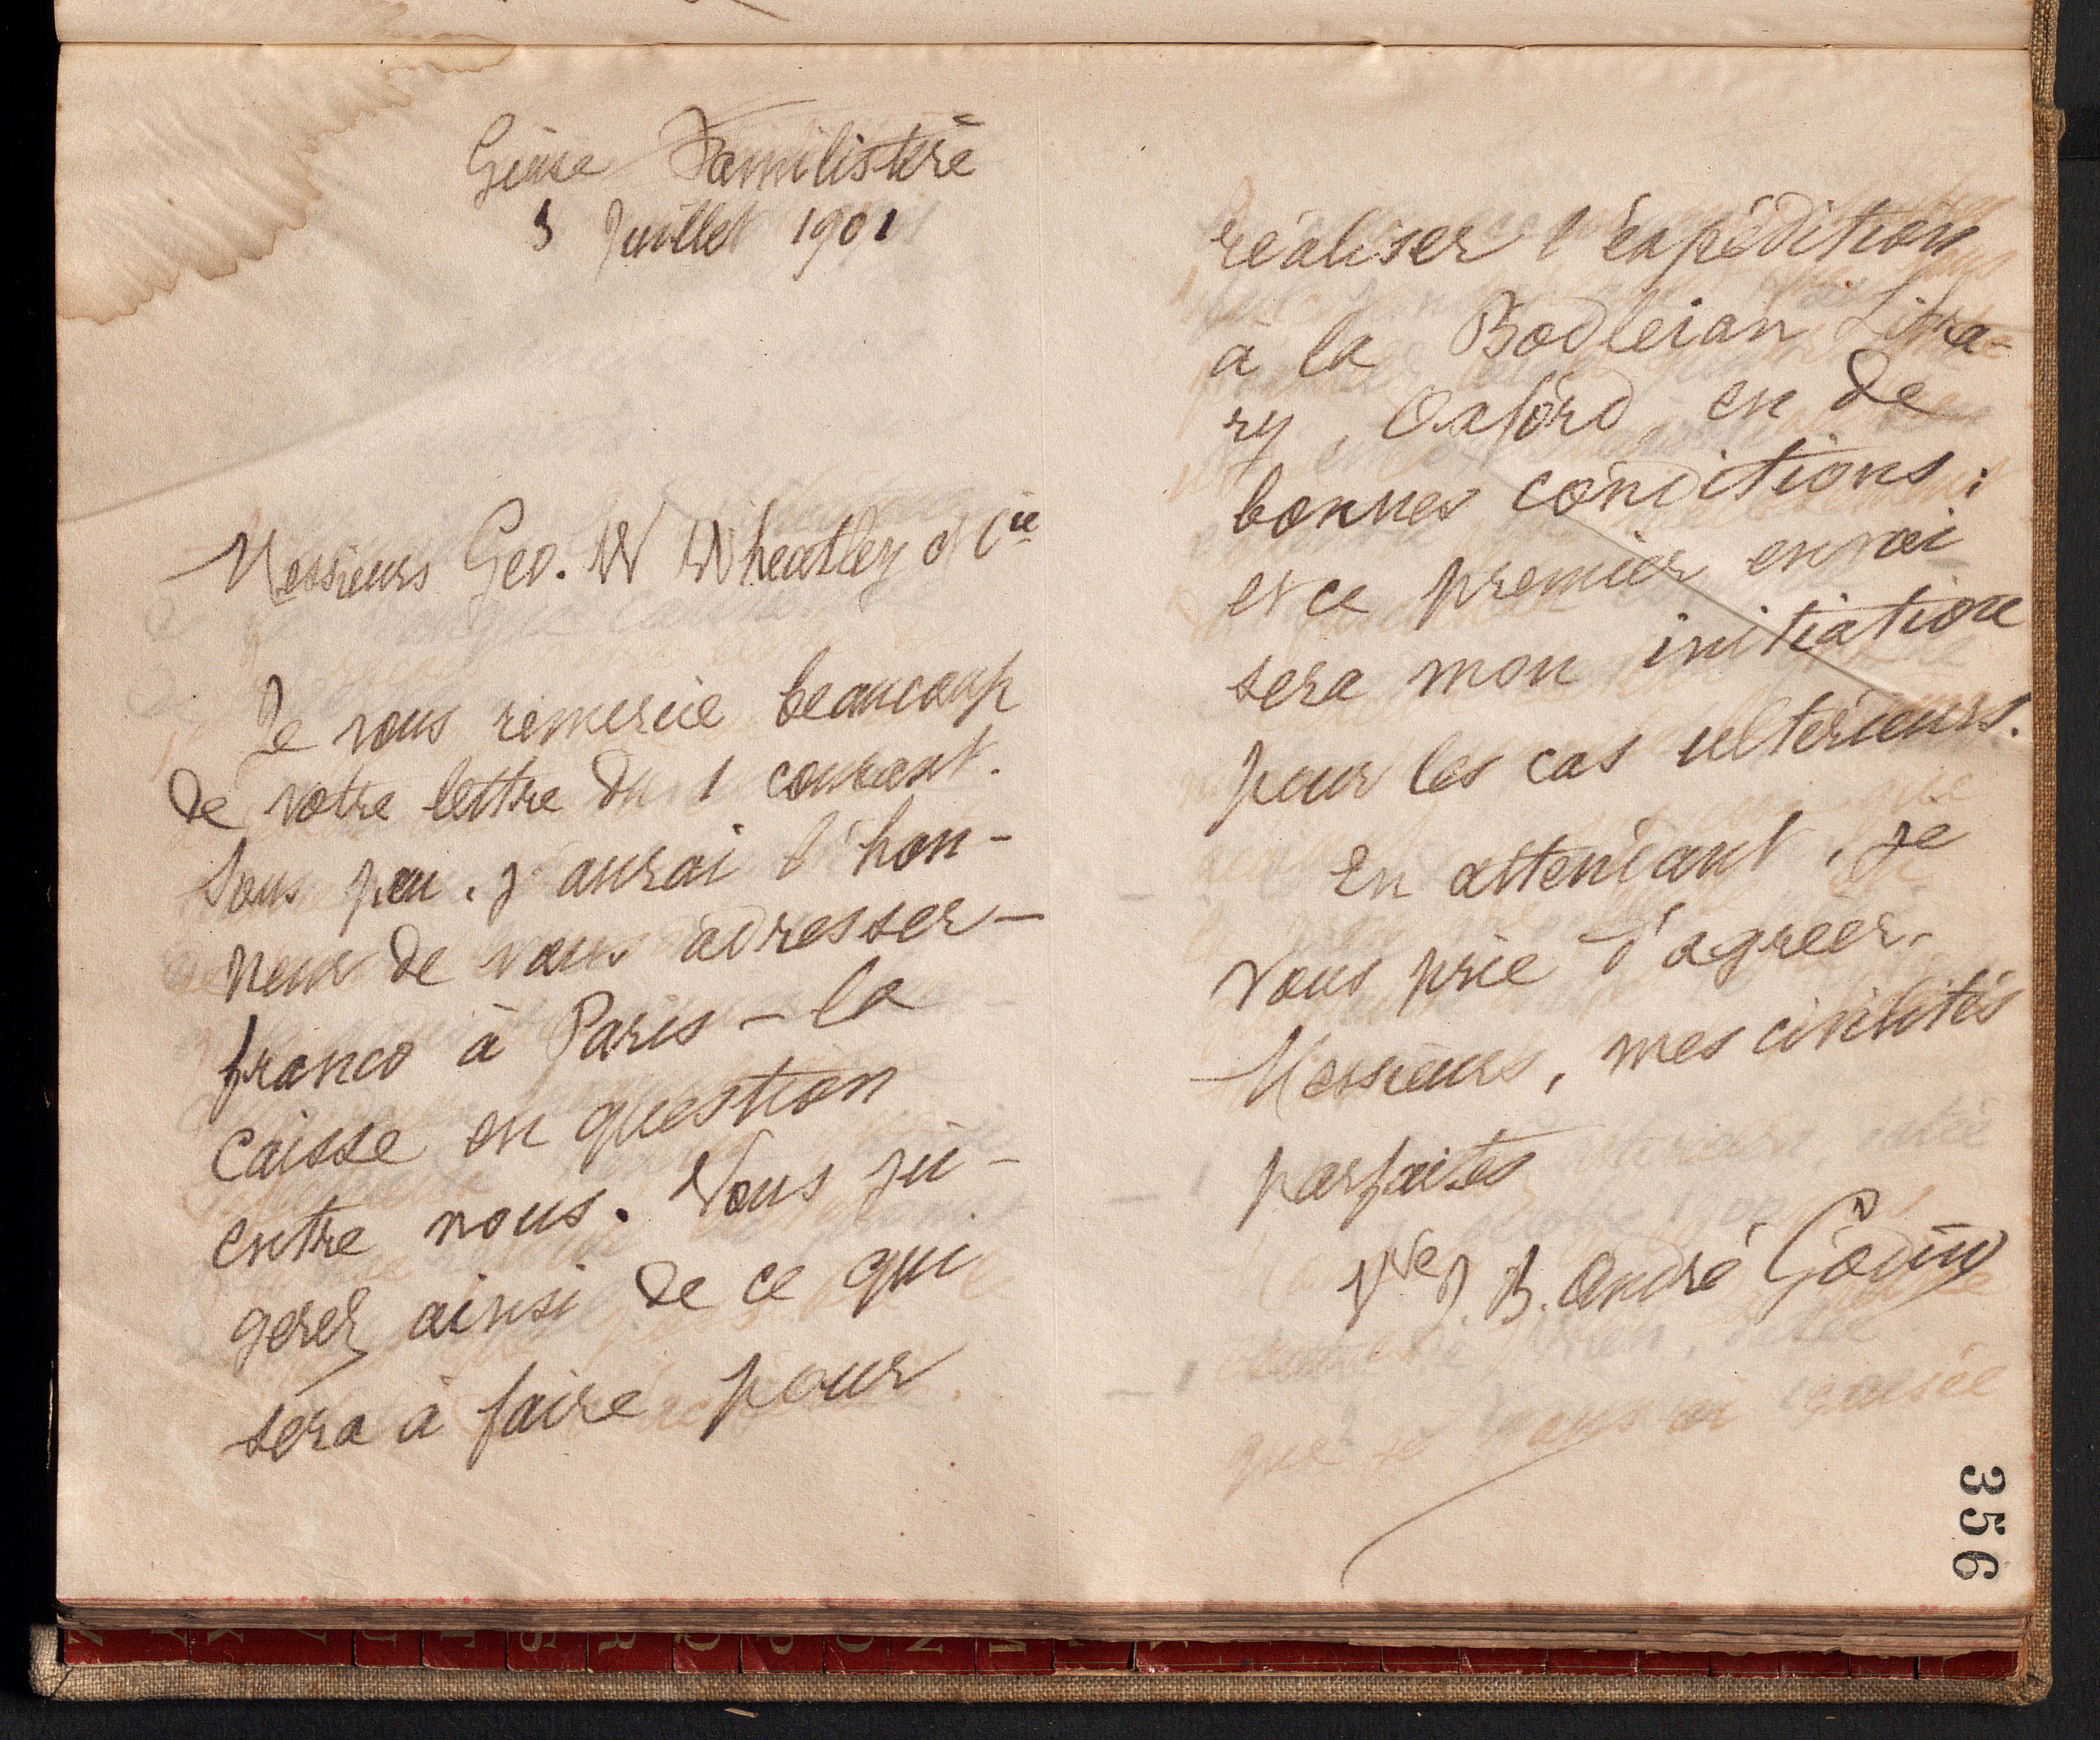 Guise Familistère
Juillet 1901
Messieurs Geo. W Wheatley et Cie
Je vous remercie beaucoup
de votre lettre du 1 courant.
Sous peu, j'aurai l'hon-
neur de vous adresser —
franco à Paris — la
caisse en question
entre nous. Vous ju-
gerez ainsi de ce qui
sera à faire pour
réaliser l'expédition
à la Bodleian Libra-
ry, Oxford, en de
bonnes conditions;
et ce premier envoi
sera mon initiation
pour les cas ultérieurs.
En attendant, je
vous prie d'agréer,
Messieurs, mes civilités
parfaites
Vve J. B. André Godin
356